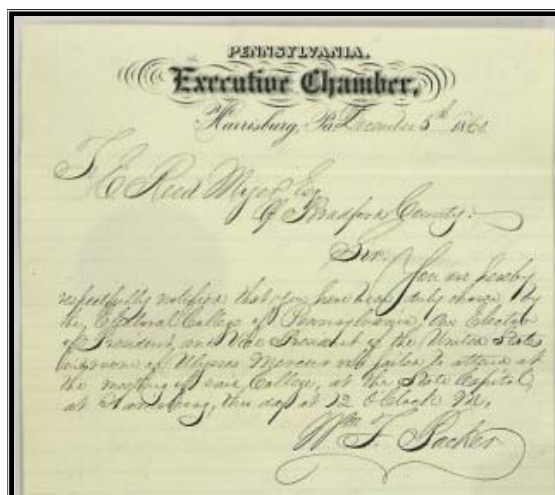 PENNSYLVANIA.
Executive Chamber,
Harrisburg, Pa December 5th 1860
To E Reed Myer Esq
Of Bradford County:
Sir: You are hereby
respectfully notified that you have been duly chosen, by
the Electoral College of Pennsylvania, an Elector
of President, and Vice President of the United States
in room of Ulysses Mercur who failed to attend at
the meeting of said College, at the State Capitol,
at Harrisburg, this day at 12 O'Clock M.
Wm F. Packer